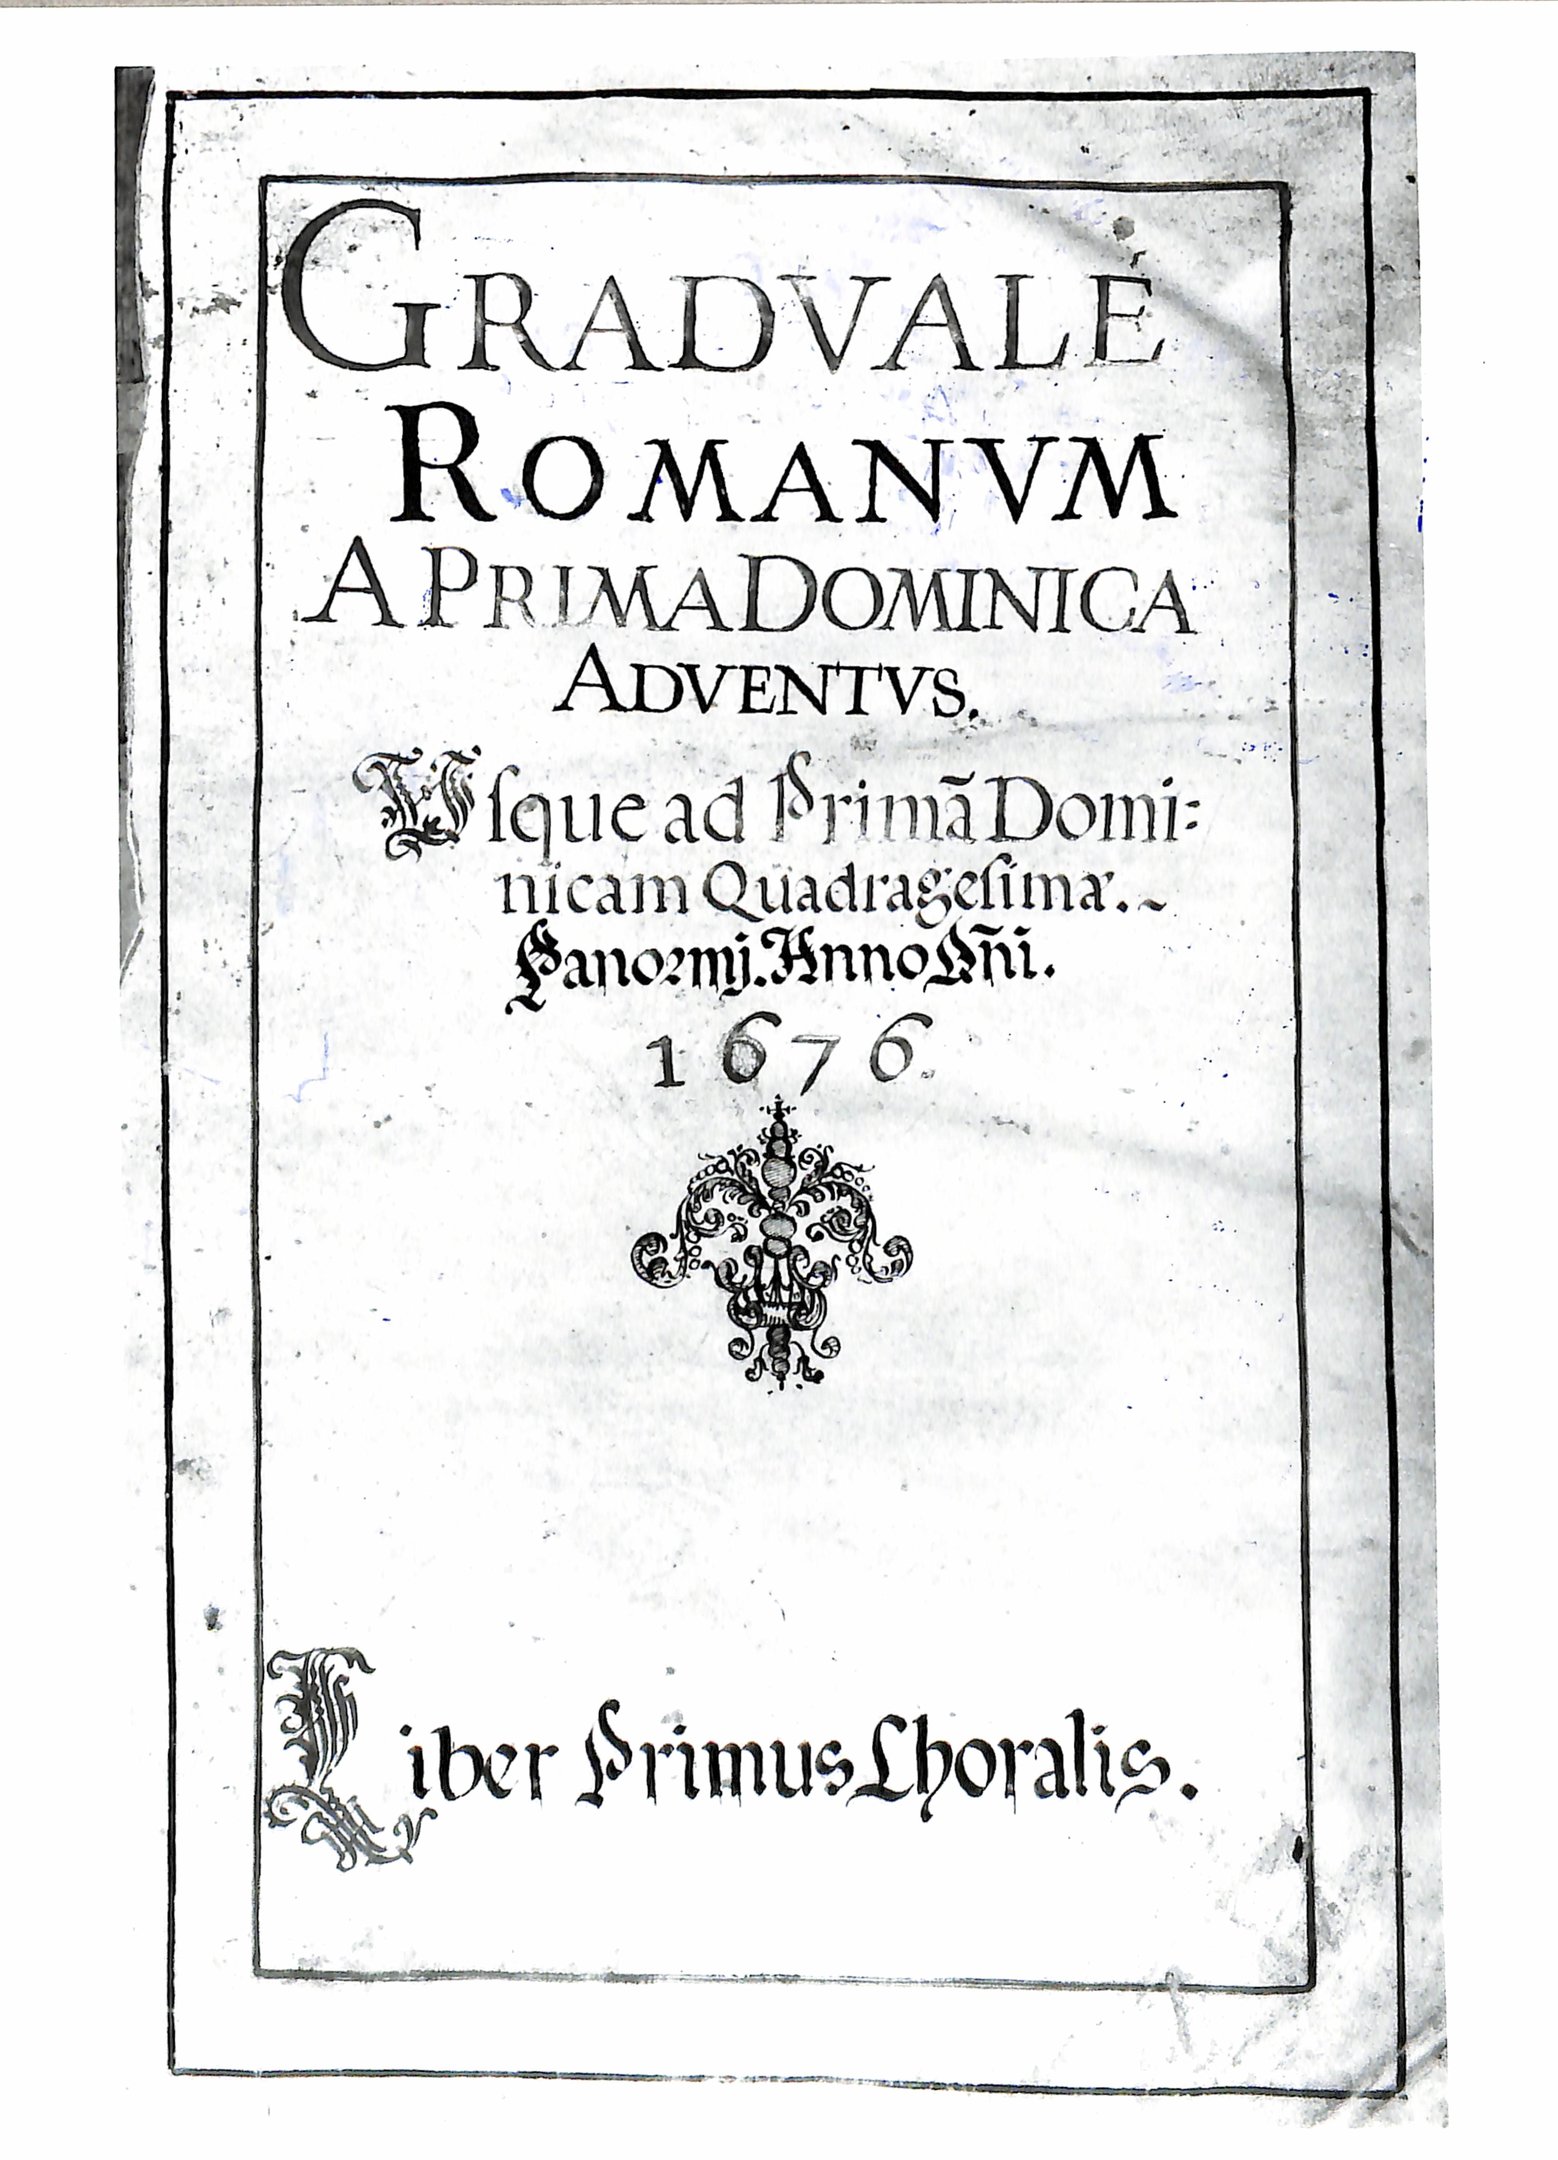 GRADVALE
ROMANVM
A PRIMA DOMINICA
ADVENTVS.
Vſque ad Primã Domi:
nicam Quadrageſimæ.~
Panormj. Anno Dñi.
1676.
Liber Primus Choralis.